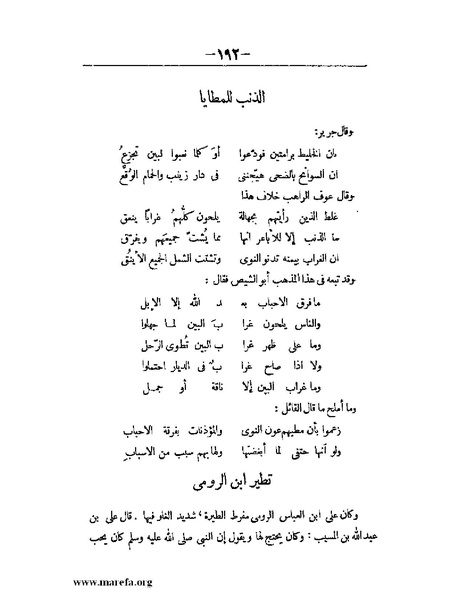 —١٩٢—
الذنب للمطايا
وقال جرير:
بان الخليط برامتين فودعوا أو كلما نعبوا لبين تجزعُ
ان السوانح بالضحى هيجننى فى دار زينب والحمام الوُقَّع
وقال عوف الراهب خلاف هذا
غلط الذين رأيتهم بجهالة يلحون كلُّهمُ غرابًا ينعق
ما الذنب إلا للأباعر انها مما يُشتّ جميعهم ويفرّق
ان الغراب بيمنه تدنو النوى وتشتت الشمل الجميع الأينُق
وقد تبعه فى هذا المذهب أبو الشيص فقال :
ما فرق الاحباب بعـ ـد الله إلا الابل
والناس يلحون غرا ب البين لما جهلوا
وما على ظهر غرا ب البين تُطوى الرّحل
ولا اذا صاح غرا بٌ فى الديار احتملوا
وما غراب البين إلا ناقة أو جمـل
وما أملح ما قال القائل :
زعموا بأن مطيهم عون النوى والمؤذنات بفرقة الاحباب
ولو أنها حتفى لما أبغضتها ولها بهم سبب من الاسباب
تطير ابن الرومى
وكان على ابن العباس الرومى مفرط الطيرة، شديد الغلو فيها . قال على بن
عبدالله بن المسيب : وكان يحتج لها ويقول إن النبى صلى الله عليه وسلم كان يحب
www.marefa.org